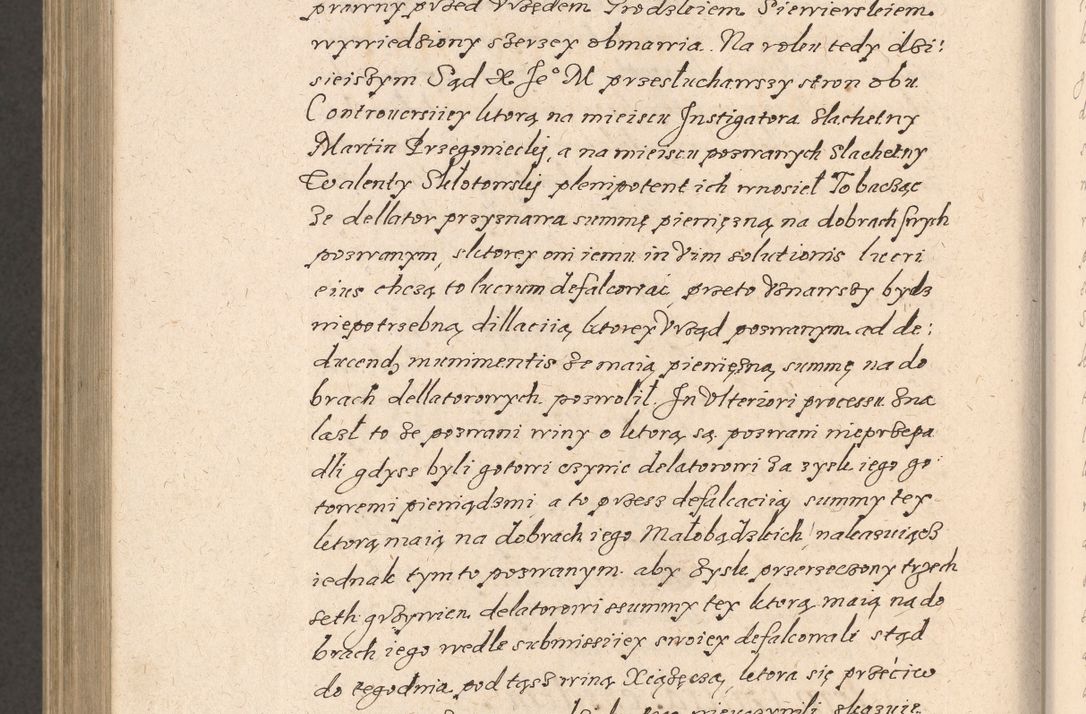 prawny przed Vrzędem Grodzkiem Siewierskiem
wywiedziony szerzey obmawia. Na roku tedy dzi:
sieiszym Sąd X Je° M przesłuchawszy stron obu
Controuersiiey ktorą na mieiscu Instigatora Slachetny
Martin Przegoniecki, a na mieiscu pozwanych Slachetny
Walenty Sklotowskj plenipotent ich wnosieł To bacząc
że dellator przyznawa summę pieniężną na dobrach swych
pozwanym, sktorey oni iemu in Vim solutionis lucri
eius chczą to lucrum defalcować, przeto Vznawszy bydz
niepotrzebną dillaciią ktorey Vrząd pozwanym ad de:
ducend munimentis że maią pieniężną summę na do
brach dellatorowych pozwolił. In Vlteriori processu zna
lazł to że pozwani winy o ktorą są pozwani nieprzepa
dli gdysz byli gotowi czynic delatorowi za zysk iego go
towemi pieniądzmi a to przesz defalcaciią summy tey
ktorą maią na dobrach iego Małobądzkich, nakazuiącz
iednak tymto pozwanym aby zysk przerzeczony trzech
seth grzywien delatorowi ssummy tey ktorą maią na do
brach iego wedle submissiiey swoiey defalcowali stąd
do tegodnia pod tąsz winą Xiążęczą, ktora się przećiw